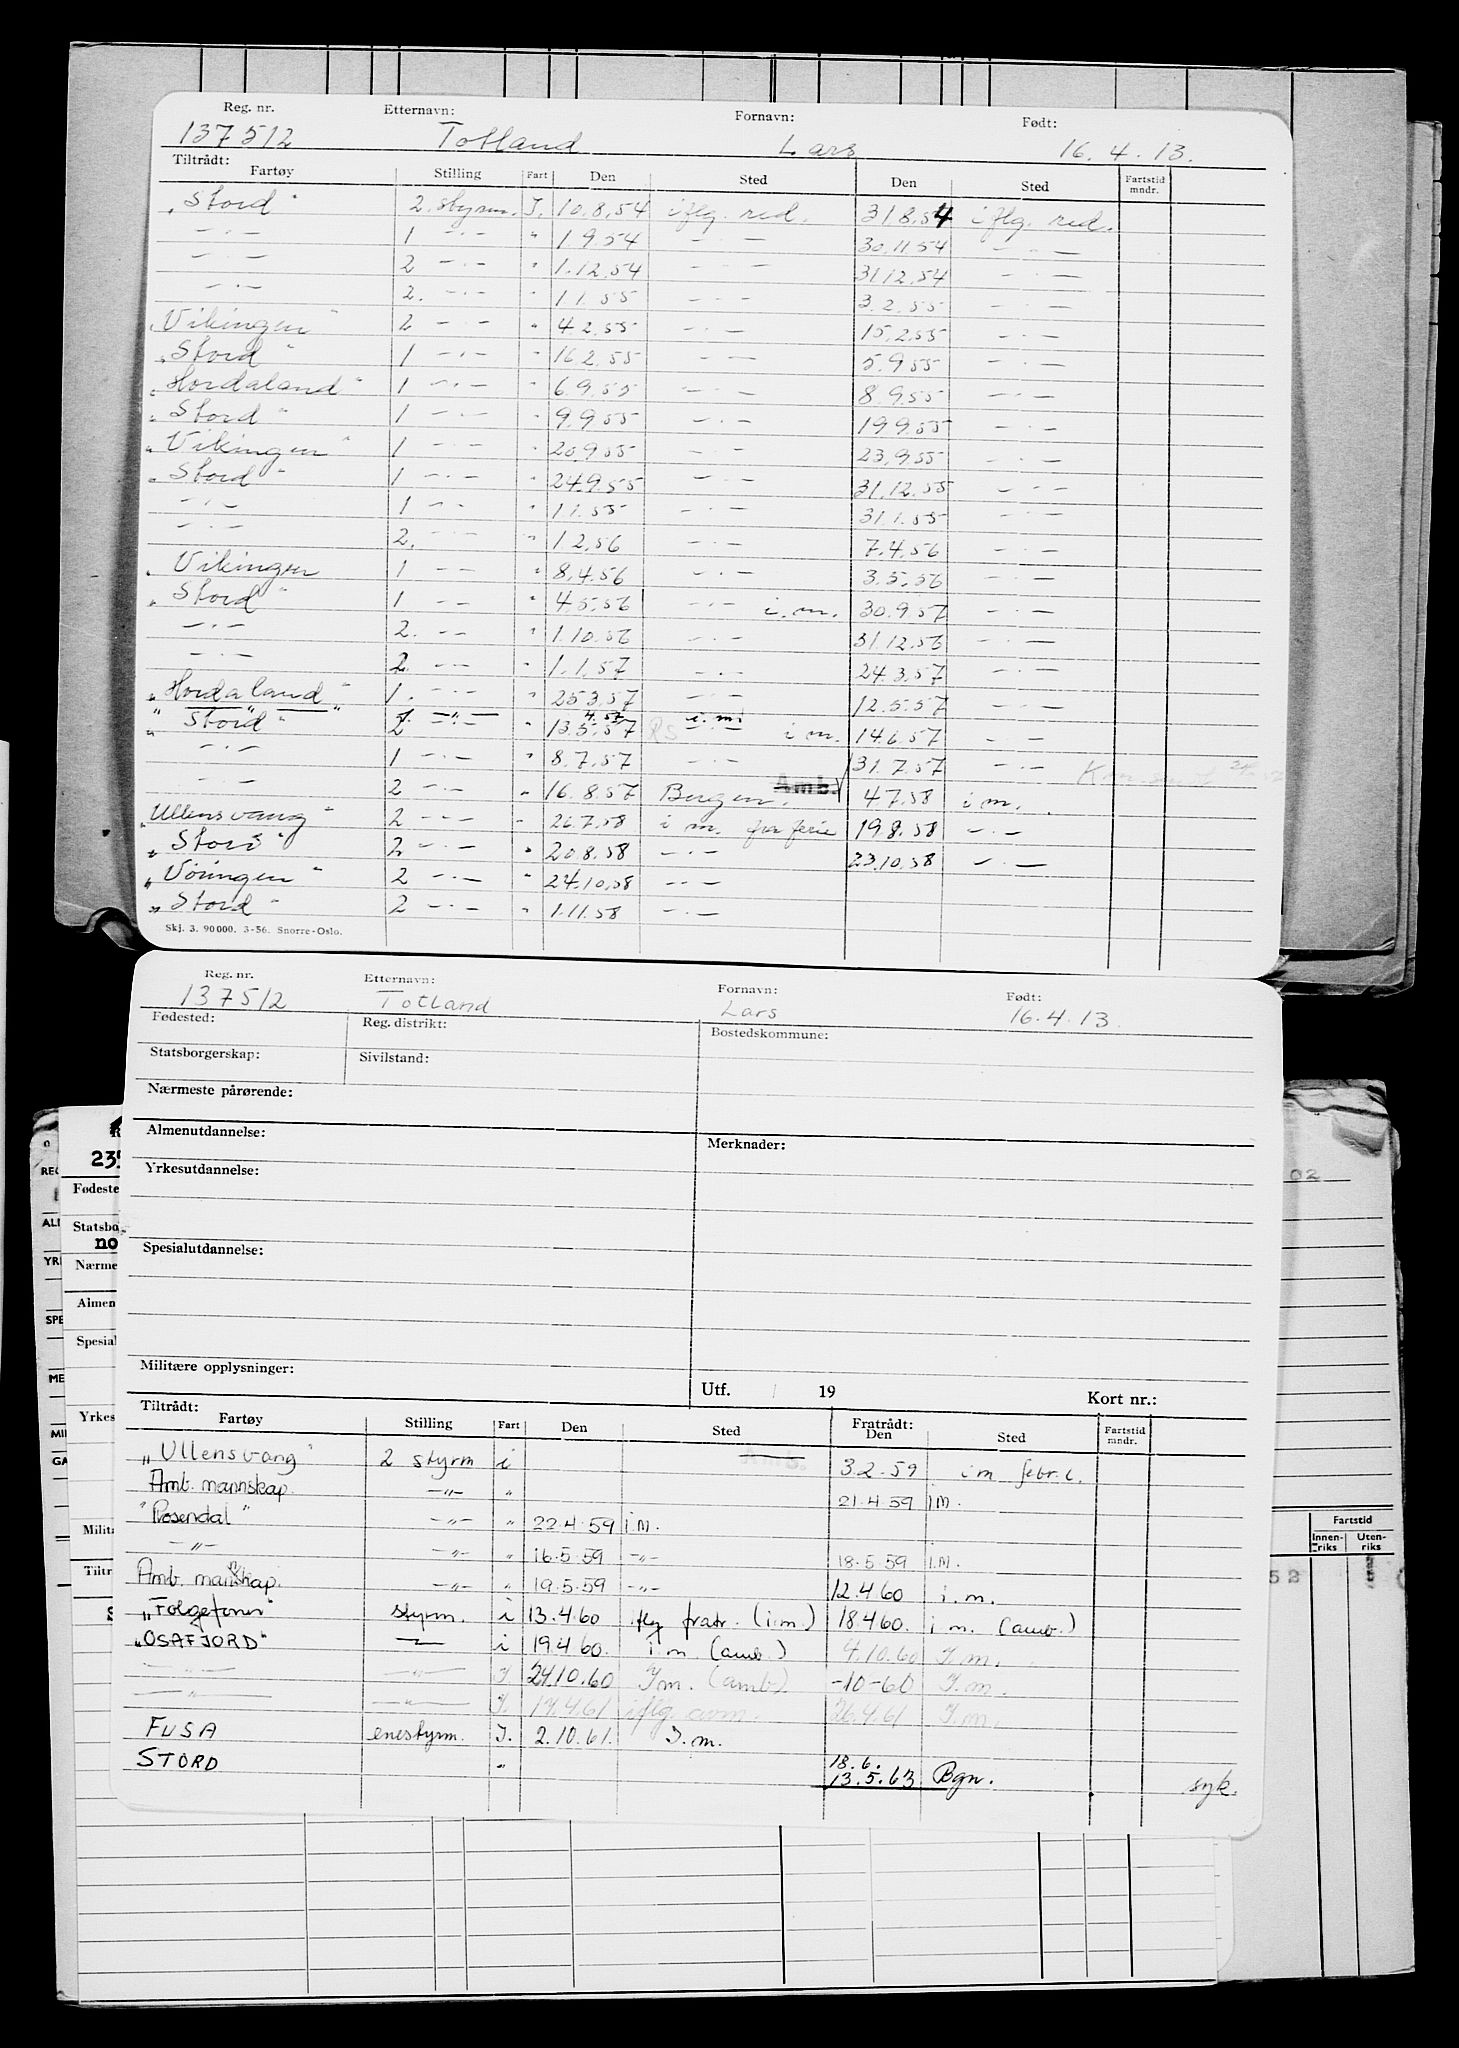 Reg. nr. Etternavn: Fornavn: Født:
137512 Totland Lars 16.4.13.
Tiltrådt:
Fartøy Stilling Fart Den Sted Den Sted Fartstid mndr.
„Stord" 2. styrm. I. 10.8.54 iflg. red. 31 8.54 iflg. red.
—·— 1 —·— " 1.9.54 —·— 30.11.54 —·—
—·— 2 —·— " 1.12.54 —·— 31.12.54 —·—
—·— 2. —·— " 1 1.55 —·— 3.2.55 —·—
„Vikingen" 2 —·— " 4.2.55 —·— 15.2.55 —·—
„Stord" 1 —·— " 16 2.55 —·— 5.9.55 —·—
„Hordaland" 1 —·— " 6.9.55 —·— 8.9.55 —·—
„Stord" 1 —·— " 9.9.55 —·— 19.9.55 —·—
„Vikingen" 1 —·— " 20.9.55 —·— 23.9.55 —·—
„Stord" 1 —·— " 24.9.55 —·— 31.12.55 —·—
—·— 1 —·— " 1.1.55 —·— 31.1.55 —·—
—·— 2. —·— " 1.2.56 —·— 7.4.56 —·—
„Vikingen 1 —·— " 8.4.56 —·— 3.5.56 —·—
„Stord" 1 —·— " 4.5.56 —·— i.m. 30.9.57 —·—
—·— 2. —·— " 1.10.56 —·— 31.12.56 —·—
—·— 2. —·— " 1.1.57 —·— 24.3.57 —·—
„Hordaland" 1. —·— " 25 3.57 —·— 12.5.57 —·—
" — " — " 1. —"— 4.57 i.m.
„Stord" 2 —·— " 13.5.57 RS —·— i m. 14.6.57 —·—
—·— 1 —·— " 8.7.57 31.7.57 —·—
—·— 2 —·— " 16.8.57 Bergen. Amb. 4.7.58 i m.
„Ullensvang" 2 —·— " 26.7.58 i m. fra ferie 19.8.58 —·—
„Stord" 2 —·— " 20.8.58 —·— 23.10.58 —·—
„Vöringen" 2 —·— " 24.10.58 —·—
„Stord" 2 —·— " 1.11.58 —·—
Skj. 3. 90000. 3-56. Snorre-Oslo.
Reg. nr. Etternavn: Fornavn: Født:
137512 Totland Lars 16.4.13.
Fødested: Reg. distrikt: Bostedskommune:
Statsborgerskap: Sivilstand:
Nærmeste pårørende:
Almenutdannelse: Merknader:
Yrkesutdannelse:
Spesialutdannelse:
Militære opplysninger:
Utf. / 19 Kort nr.:
Tiltrådt: Fratrådt:
Fartøy Stilling Fart Den Sted Den Sted Fartstid mndr.
„Ullensvang" 2 styrm i Amb. 3.2.59 i m febr.l.
Amb. mannskap. —"— " 21.4.59 i M.
"Rosendal" —"— " 22.4.59 i M.
—"— —"— " 16.5.59 —"— 18.5.59 i.M.
Amb. mannskap. —"— " 19.5.59 —"— 12.4.60 i.m.
„Folgefonn" styrm. i 13.4.60 iflg fratr. (i.m.) 18.4.60. i m. (amb.)
„OSAFJORD" — i 19.4.60. i.m. (amb.) 4.10.60 I.m.
—"— —"— I. 24.10.60 I m. (amb) -10-60 I.m.
—"— —"— I. 17.4.61 iflg avm. 26.4.61 I.m.
FUSA enestyrm. I. 2.10.61. I.m.
STORD " 18.6.
13.5.63 Bgn. syk.
02
235
Fødeste
Statsbo
no
Nærme
Almen
Spesial
Yrkes
Milita
Tiltr
REG
ALM
YRK
SPE
ME
MIL
GA
Fartstid
Innenriks Utenriks
52